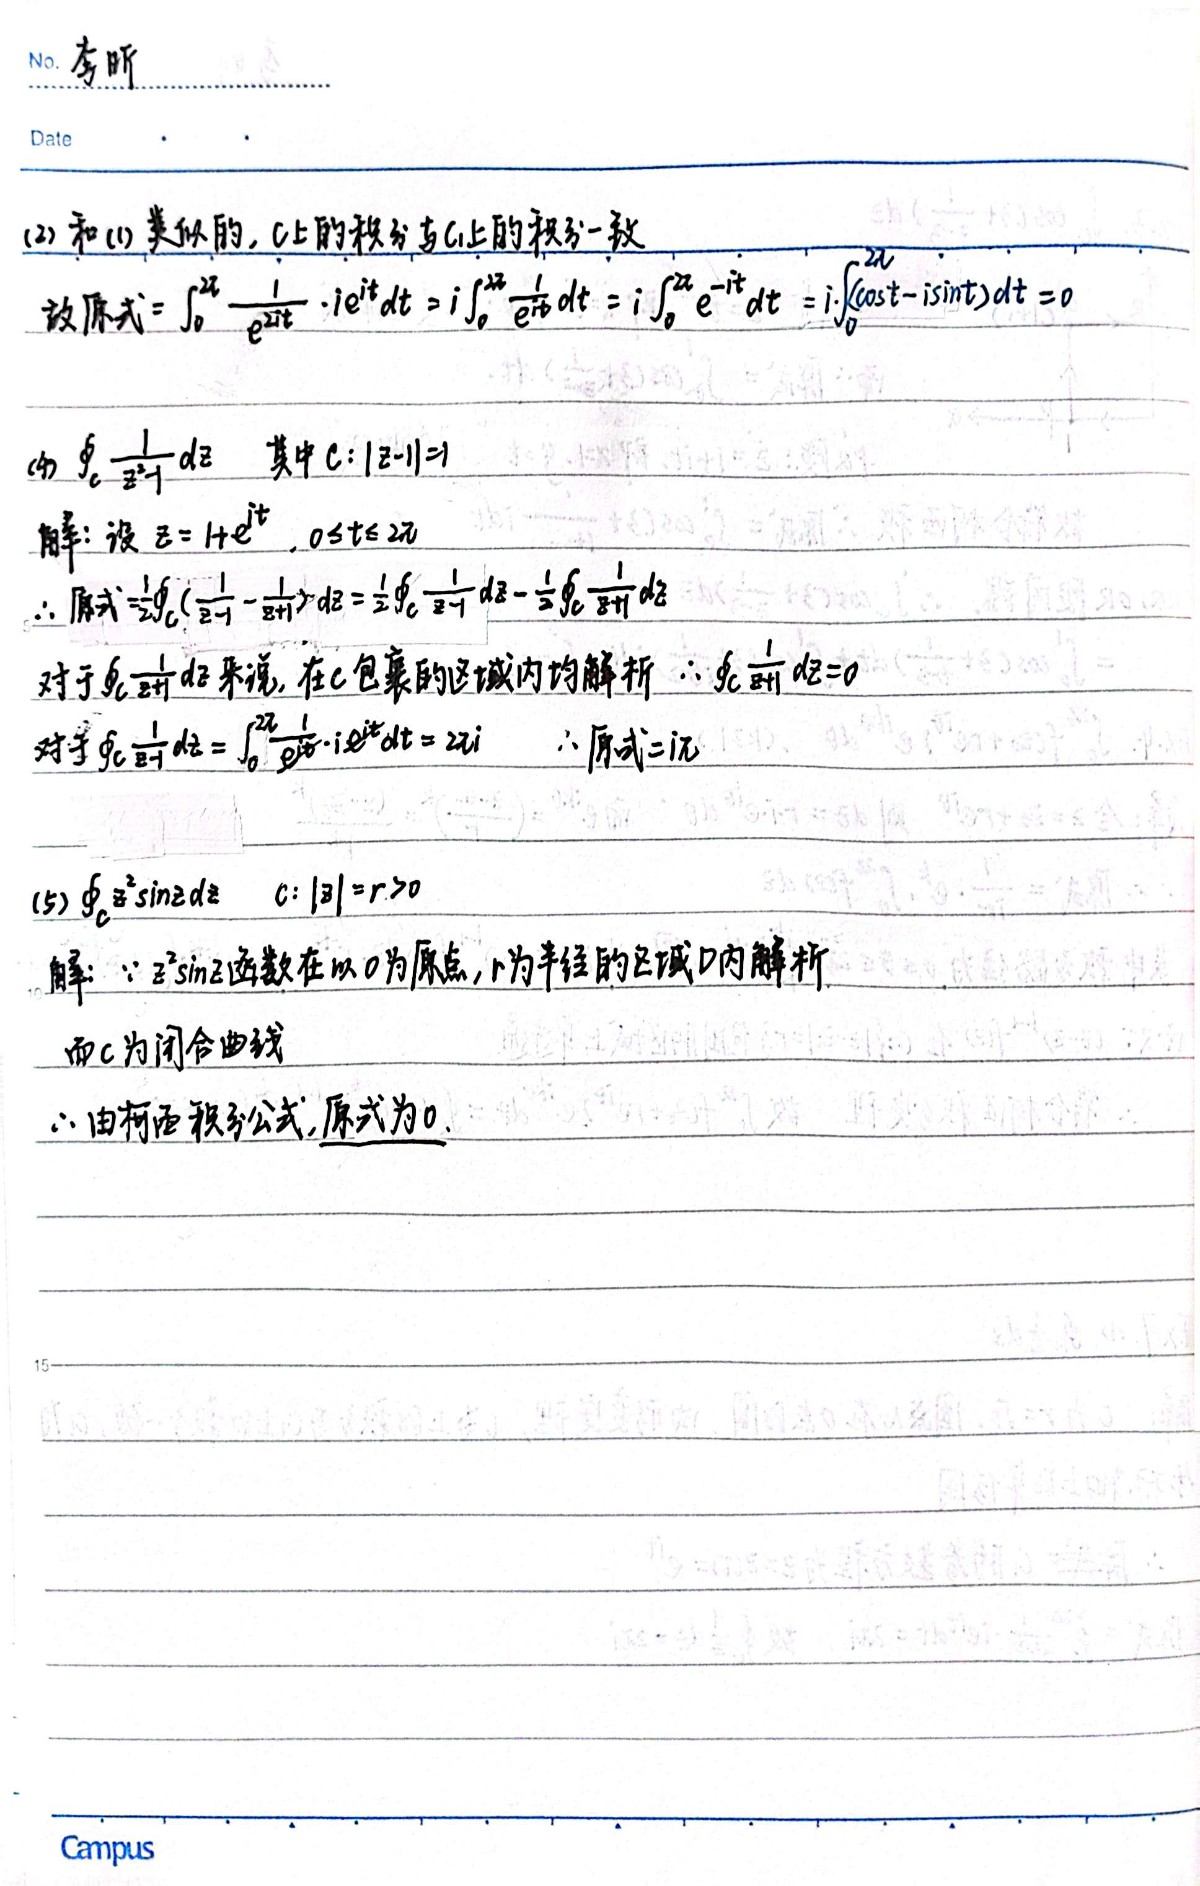 No. 李昕
Date
(2) 和(1) 类似的, C上的积分与C₁上的积分一致
故原式 = ∫₀^{2π} 1/e^{2it} · ie^{it} dt = i∫₀^{2π} 1/e^{it} dt = i∫₀^{2π} e^{-it} dt = i·∫₀^{2π}(cost-isint)dt = 0
(4) ∮_C 1/(z²-1) dz 其中 C: |z-1|=1
解: 设 z = 1+e^{it}, 0≤t≤2π
∴ 原式=½∮_C(1/(z-1) - 1/(z+1))dz = ½∮_C 1/(z-1) dz - ½∮_C 1/(z+1) dz
对于∮_C 1/(z+1) dz 来说, 在C包裹的区域内均解析 ∴ ∮_C 1/(z+1) dz=0
对于∮_C 1/(z-1) dz = ∫₀^{2π} 1/e^{it} · ie^{it} dt = 2πi ∴ 原式=iπ
(5) ∮_C z²sinz dz C: |z|=r>0
解: ∵ z²sinz函数在以0为原点, r为半径的区域D内解析
而C为闭合曲线
∴ 由柯西积分公式, 原式为0.
10
15
Campus